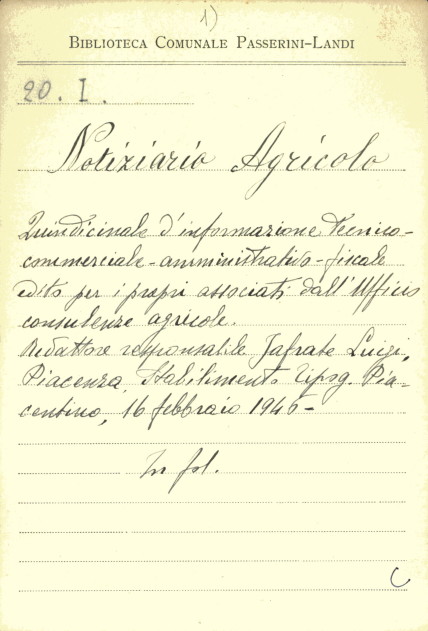 1)
BIBLIOTECA COMUNALE PASSERINI-LANDI
20. I.
Notiziario Agricolo
Quindicinale d'informazione tecnico-
commerciale-amministrativo-fiscale
edito per i propri associati dall'Ufficio
consulenze agricole.
Redattore responsabile Jafrate Luigi,
Piacenza, Stabilimento Tipog. Pia-
centino, 16 febbraio 1946-
In fol.
C